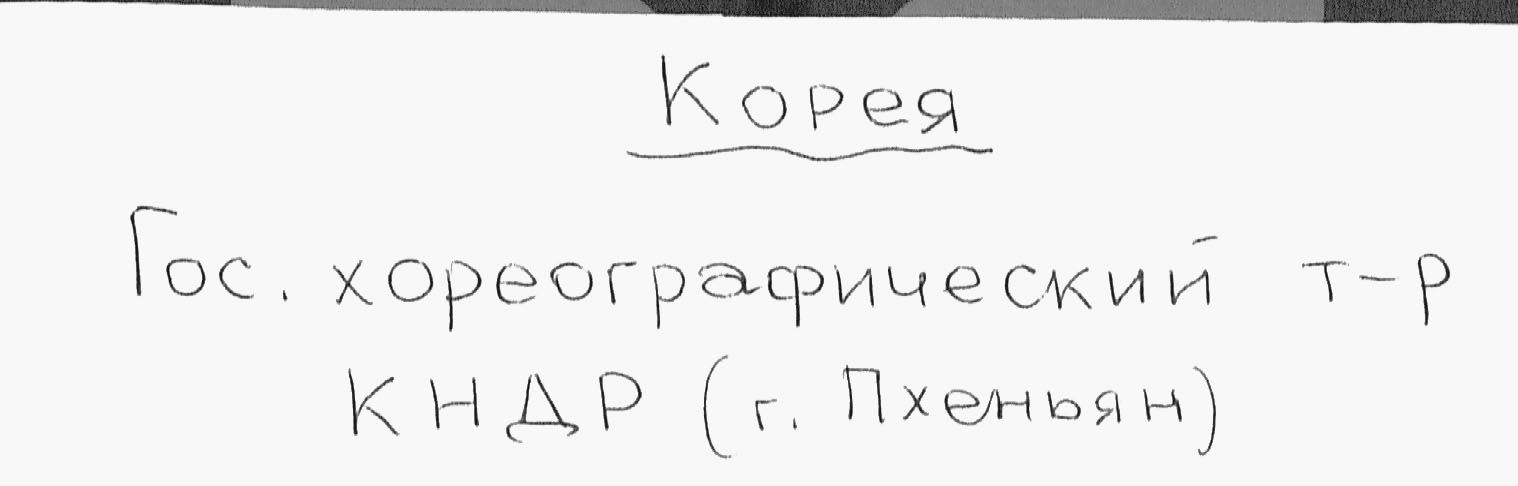 Корея
Гос. хореографический т-р
КНДР (г. Пхеньян)